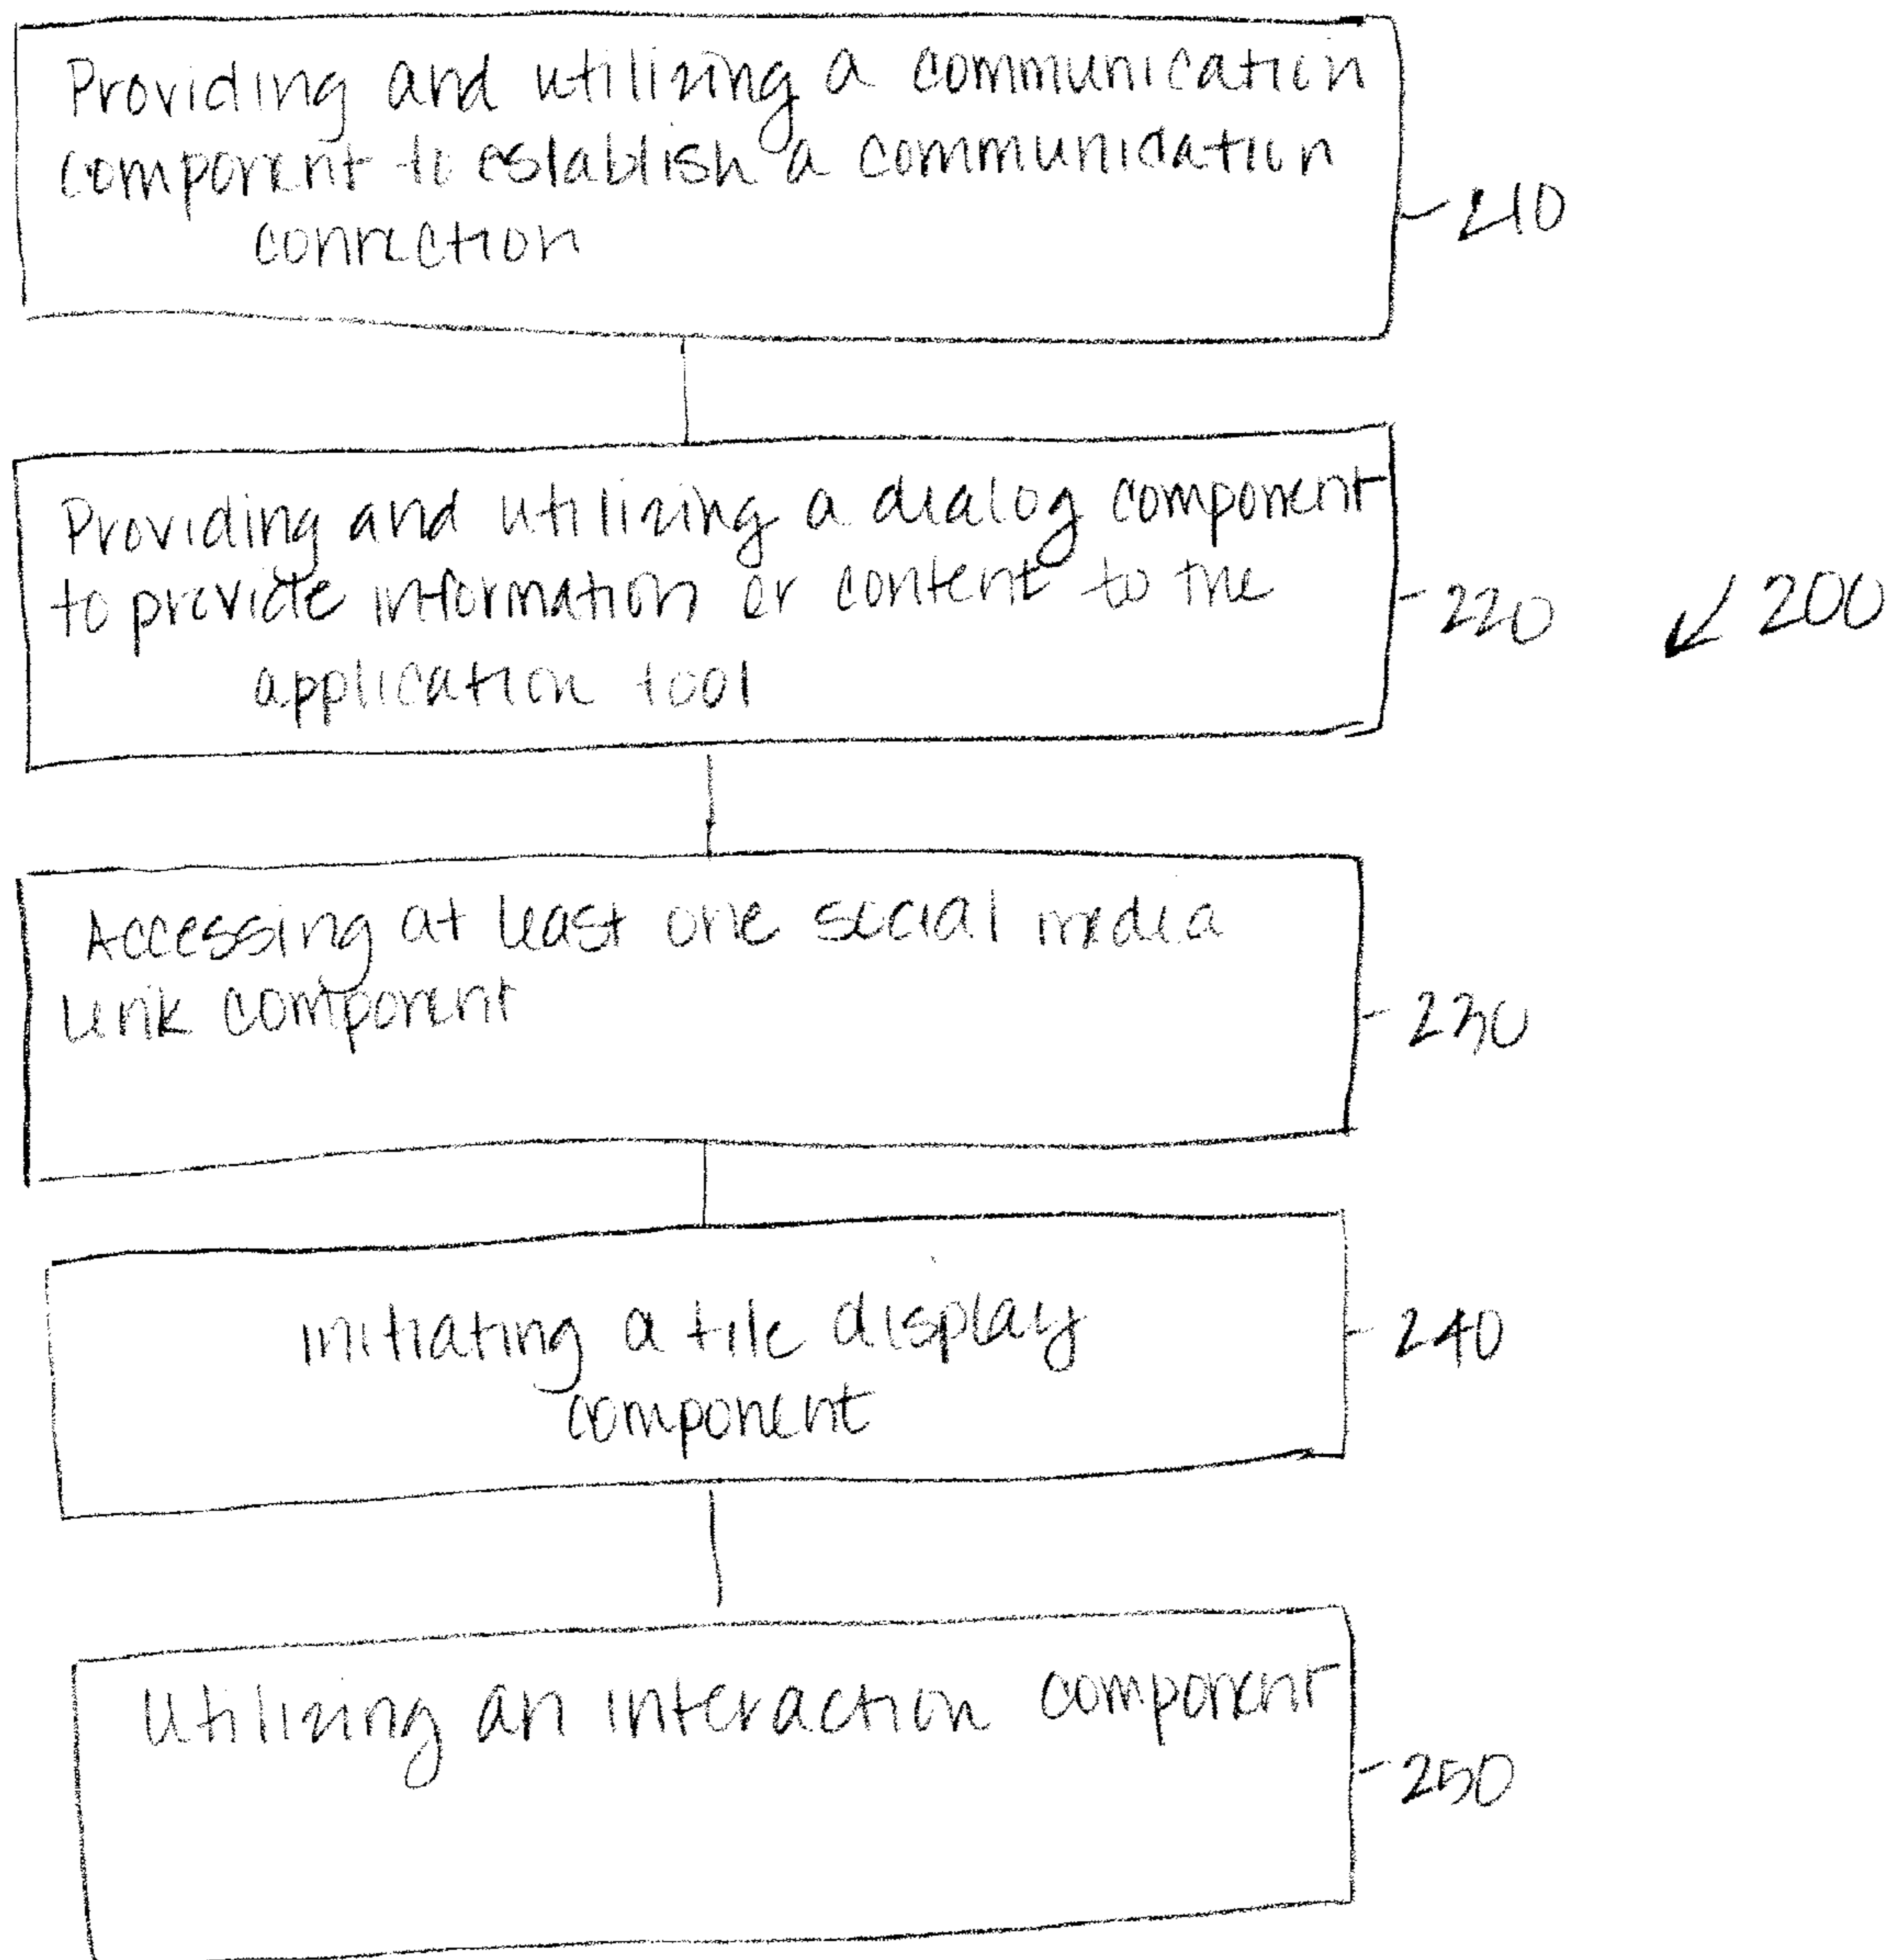 Providing and utilizing a communication
component to establish a communication
connection
210
Providing and utilizing a dialog component
to provide information or content to the
application tool
220
200
Accessing at least one social media
link component
230
initiating a tile display
component
240
Utilizing an interaction component
250